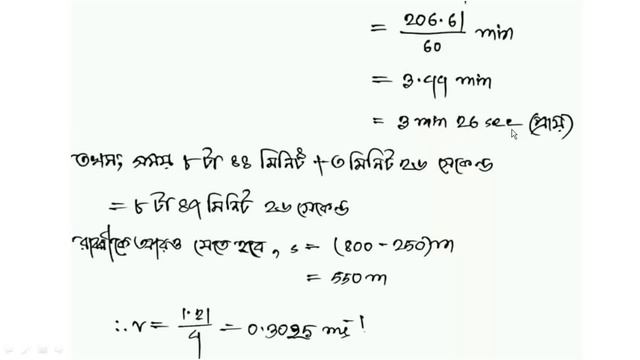 = 206.61/60 min
= 3.44 min
= 3 min 26 sec (প্রায়)
তখন, সময় ৮ টা ৪৪ মিনিট + ৩ মিনিট ২৬ সেকেন্ড
= ৮ টা ৪৭ মিনিট ২৬ সেকেন্ড
আরও যেতে হবে, s = (800 - 250) m
= 550 m
∴ v = 1.21/4 = 0.3025 ms⁻¹